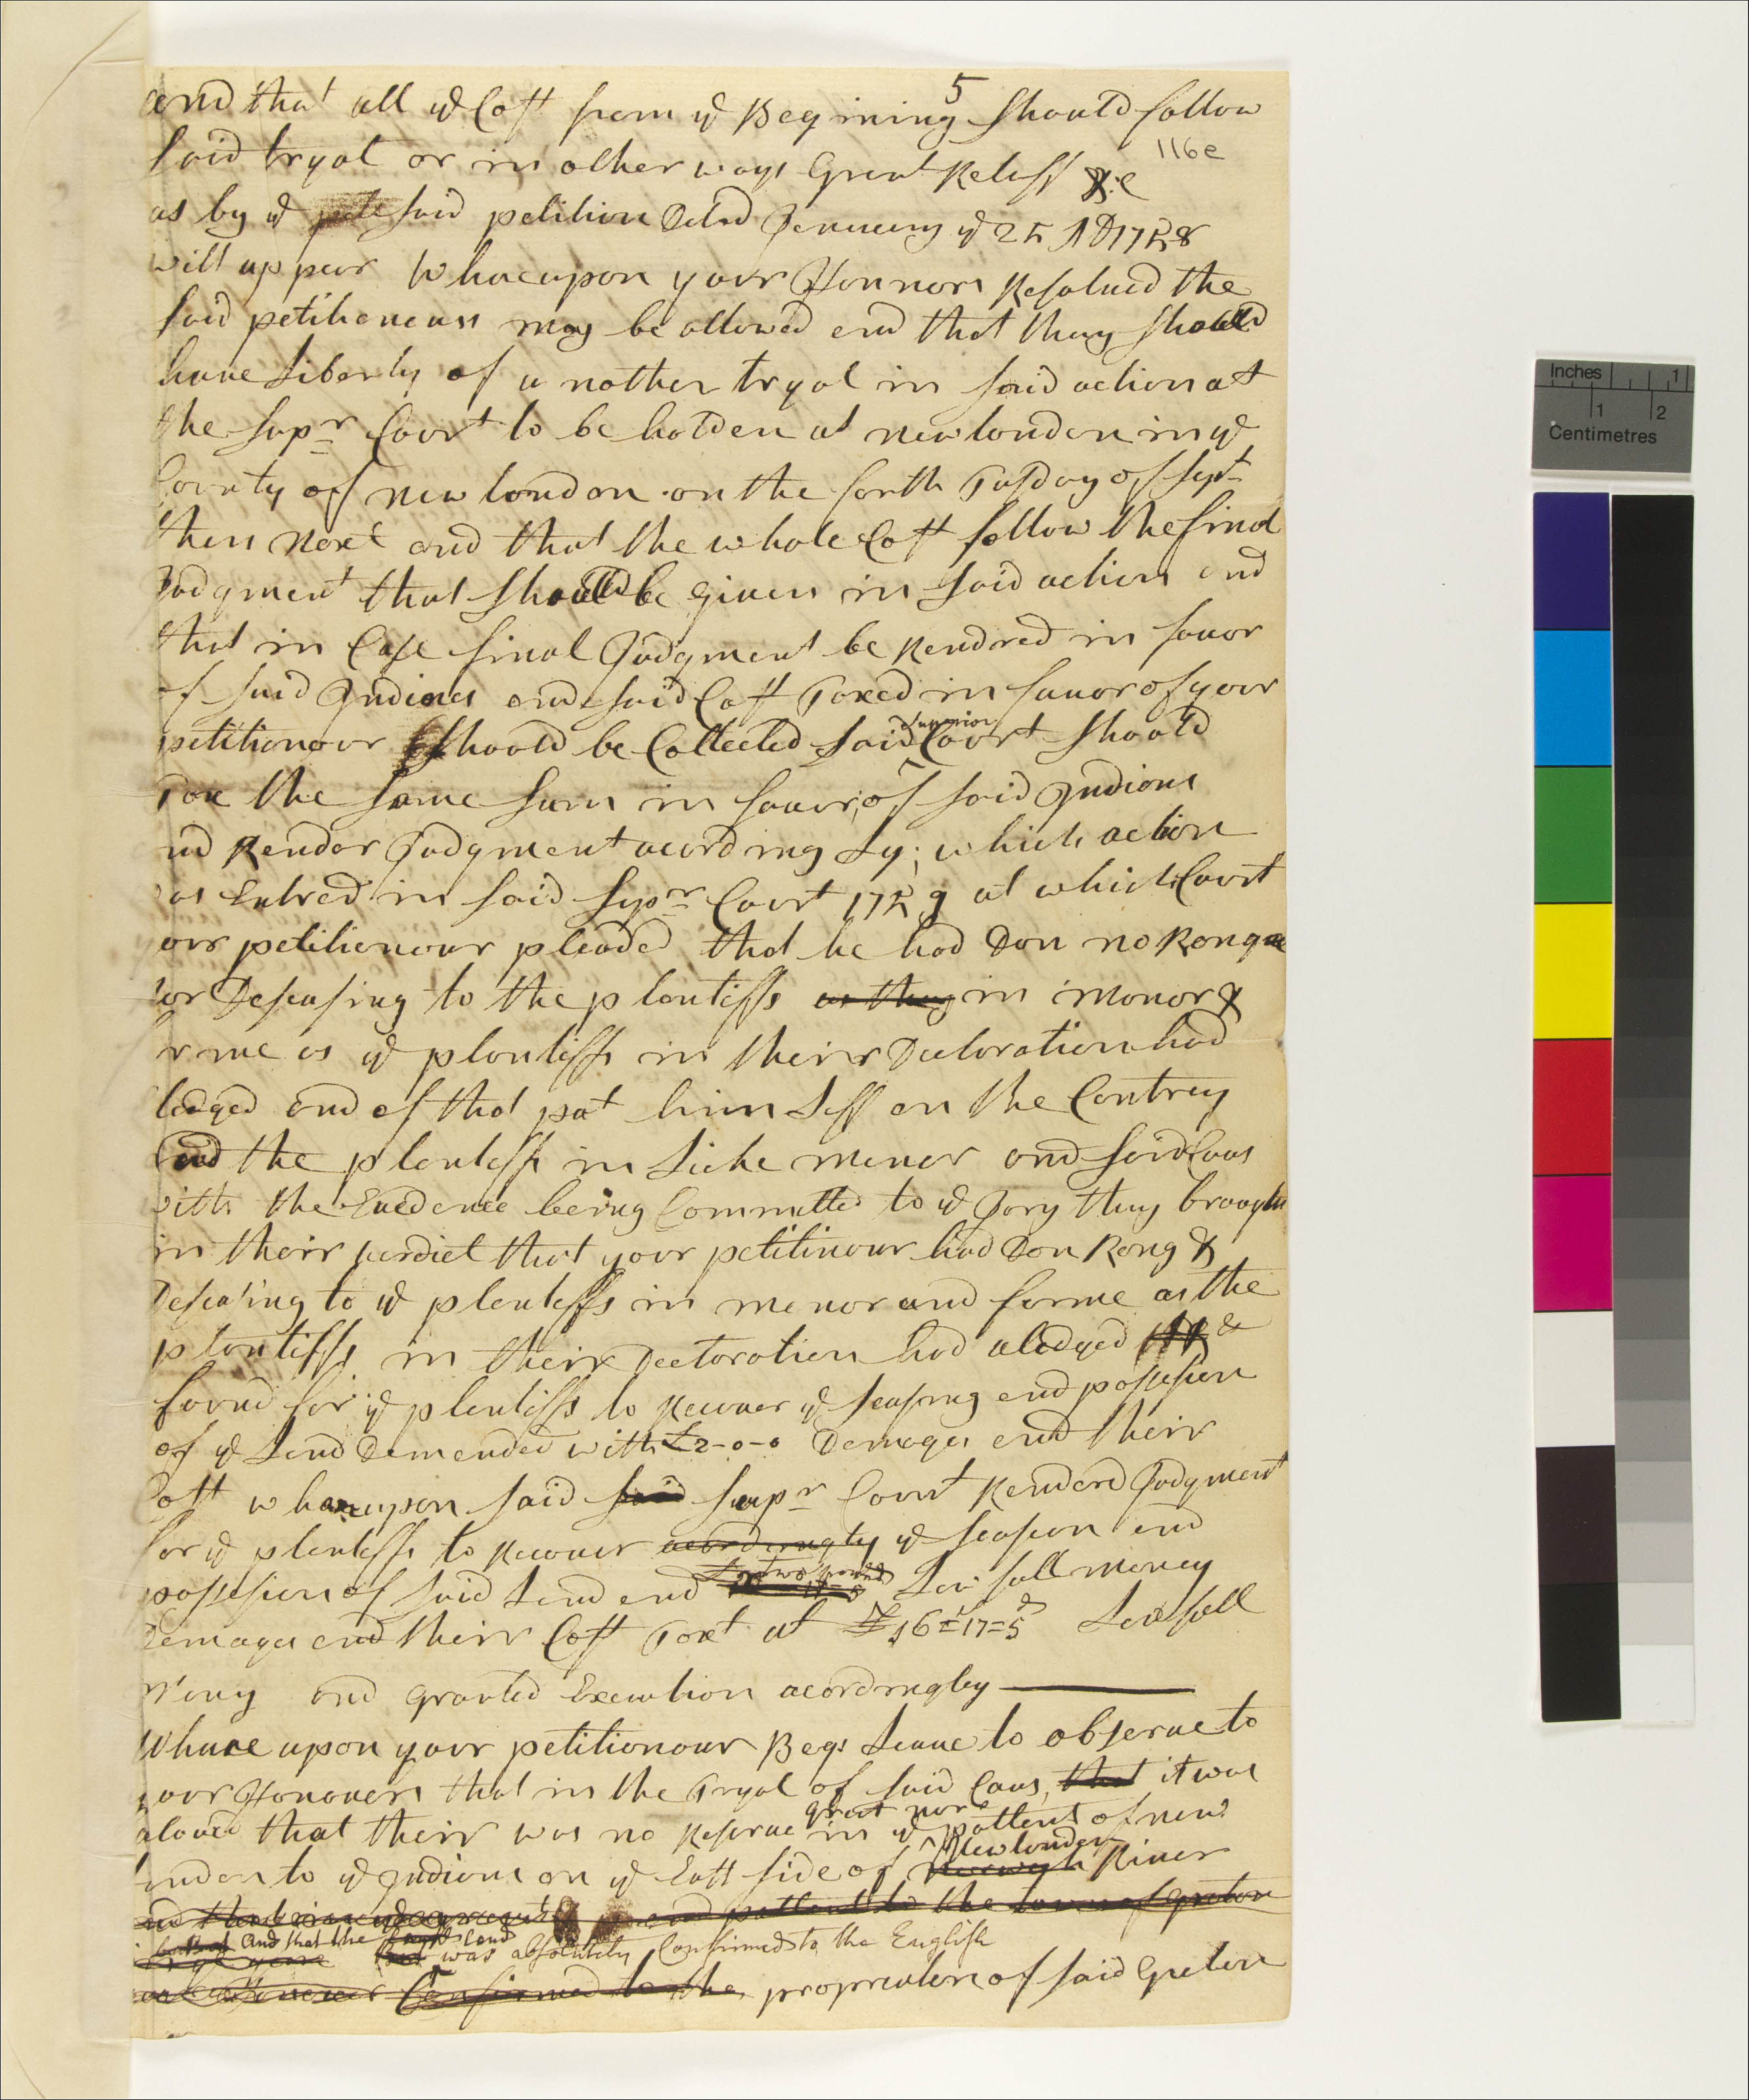 5
and that all yᵉ Cost from yᵉ Begining should follow
116e
said tryal or in other ways Grant Releff &c
as by yᵉ said petition Dated Jenuery yᵉ 25 AD 1758
will appear Whareupon your Honnors Resalued the
said petitioneurs may be allowed and that thay should
haue Liberty of a nother tryal in said action at
the Supr Court to be holden at new london in yᵉ
County of new london on the forth Tusday of Sept
then Next and that the whole Cost follow the final
Judgment that should be Giuen in said action and
that in Case final Judgment be Rendred in fauor
of said Indians and said Cost Taxed in fauor of your
petitionour should be Collected said Superior Court should
Tax the same sum in fauor of said Indians
nd Render Judgment acording Ly; which action
as Entred in said Supr Court 1759 at which Court
our petitionour pleaded that he had Don no Rong
or Deseasing to the plantiffs as thay in manor &
rme as yᵉ plantiffs in their Declaration had
ledged and of that put him Self on the Contrey
and the plentiffs in Like maner and said Caus
with the Euedence being Committed to yᵉ Jury they brought
in their verdict that your petitinour had Don Rong &
Deseasing to yᵉ plentiffs in menor and forme as the
plantiffs in their Declaration had aledged &
found for yᵉ plentiffs to Recouer yᵉ seasing and possesion
of yᵉ Land Demended with £2-0-0 Demages and their
Cost whareupon said said Supr Court Renderd Judgment
for yᵉ plentiffs to Recouer acordingly yᵉ seasion and
possesion of said Land and two pounds Lawfull money
Demages and their Cost Taxt at £16=17=5 Lawfull
mony and granted Execution acordingly
Whare upon your petitionour Begs Leaue to obserue to
your Honouers that in the Tryal of said Caus, that it was
aloued that their was no Reserue in yᵉ grant nor pattent of new
london to yᵉ Indians on yᵉ East side of Norwigh New london Riuer
and pattent to the town of groton
and that the land
was absolutely Confirmed to the English
Confirmed to the propriators of said Groton